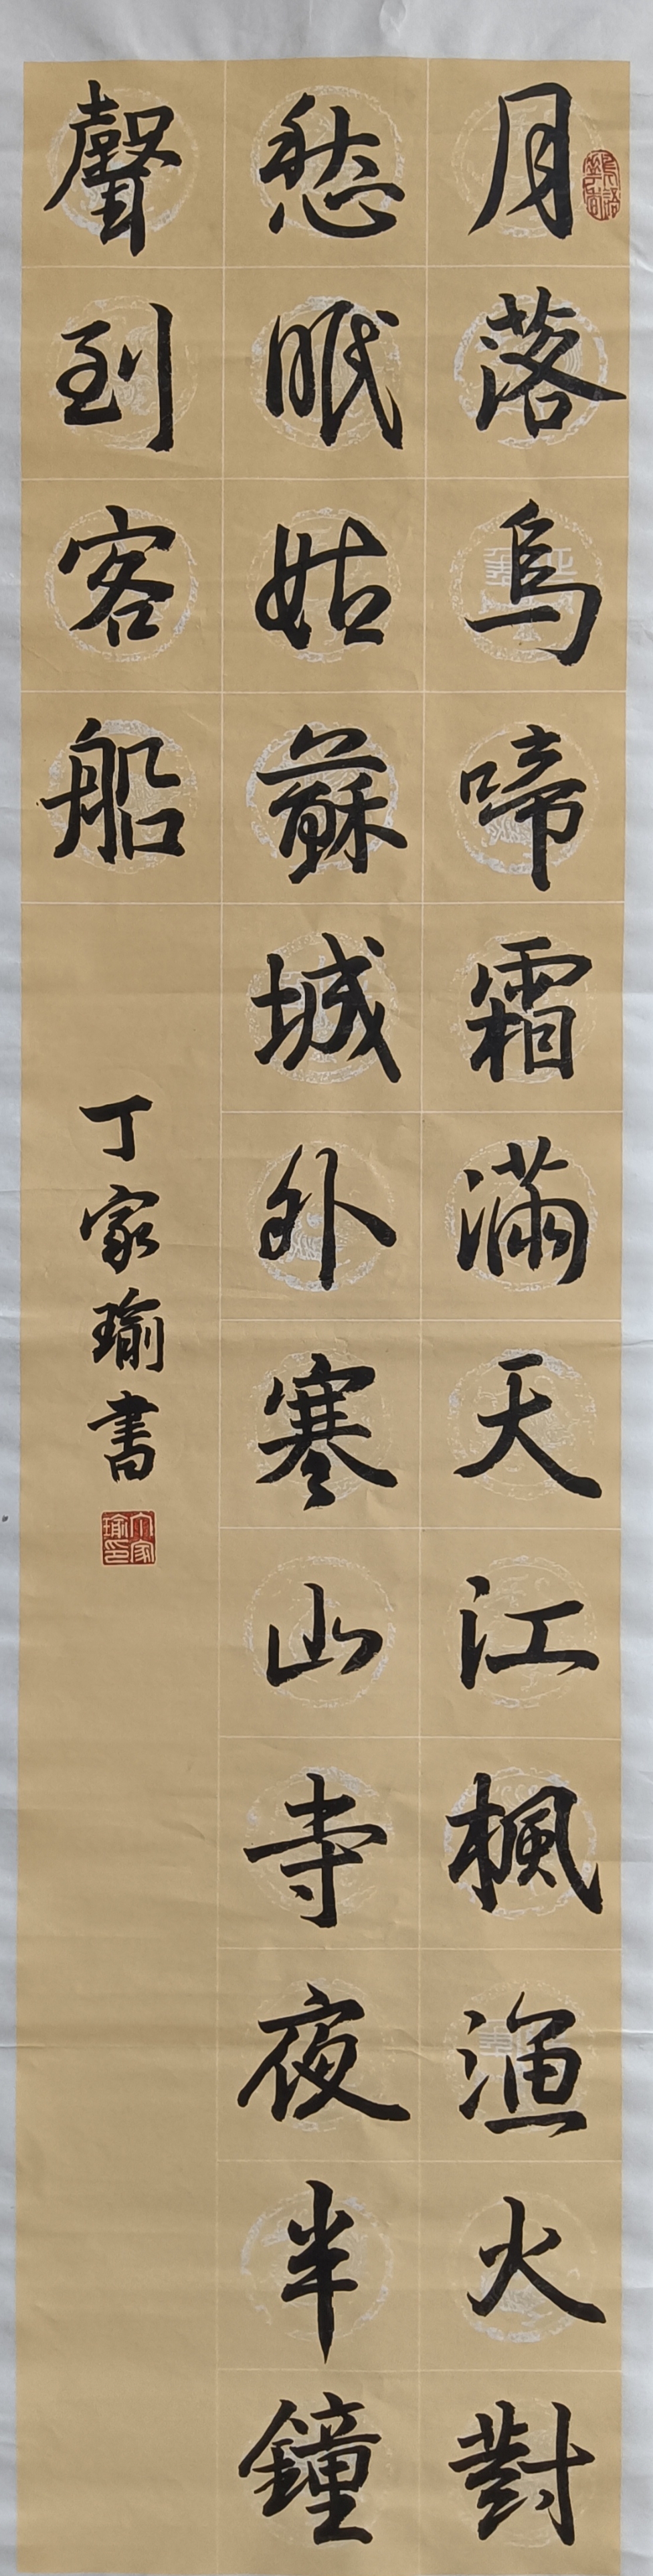 月落烏啼霜滿天江楓漁火對
愁眠姑蘇城外寒山寺夜半鐘
聲到客船
丁家瑜書
丁家瑜印